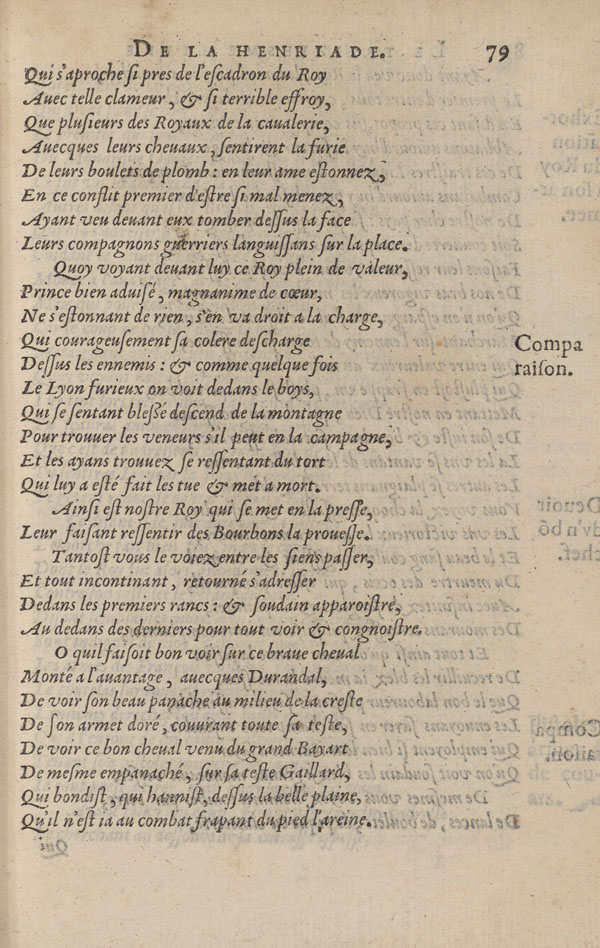 DE LA HENRIADE. 79
Qui s'aproche si pres de l'escadron du Roy
Auec telle clameur, & si terrible effroy,
Que plusieurs des Royaux de la caualerie,
Auecques leurs cheuaux, sentirent la furie
De leurs boulets de plomb : en leur ame estonnez,
En ce conflit premier d'estre si mal menez,
Ayant veu deuant eux tomber dessus la face
Leurs compagnons guerriers languissans sur la place.
Quoy voyant deuant luy ce Roy plein de valeur,
Prince bien aduisé, magnanime de cœur,
Ne s'estonnant de rien, s'en va droit a la charge,
Qui courageusement sa colere descharge
Dessus les ennemis : & comme quelque fois
Le Lyon furieux on voit dedans le boys,
Qui se sentant blessé descend de la montagne
Pour trouuer les veneurs s'il peut en la campagne,
Et les ayans trouuez se ressentant du tort
Qui luy a esté fait les tue & met a mort.
Ainsi est nostre Roy qui se met en la presse,
Leur faisant ressentir des Bourbons la prouesse.
Tantost vous le voiez entre les siens passer,
Et tout incontinant, retourné s'adresser
Dedans les premiers rancs : & soudain apparoistre,
Au dedans des derniers pour tout voir & congnoistre.
O quil faisoit bon voir sur ce braue cheual
Monté a l'auantage, auecques Durandal,
De voir son beau panache au milieu de la creste
De son armet doré, couurant toute sa teste,
De voir ce bon cheual venu du grand Bayart
De mesme empanaché, sur sa teste Gaillard,
Qui bondist, qui hannist, dessus la belle plaine,
Qu'il n'est ia au combat frapant du pied l'areine.
Compa
raison.